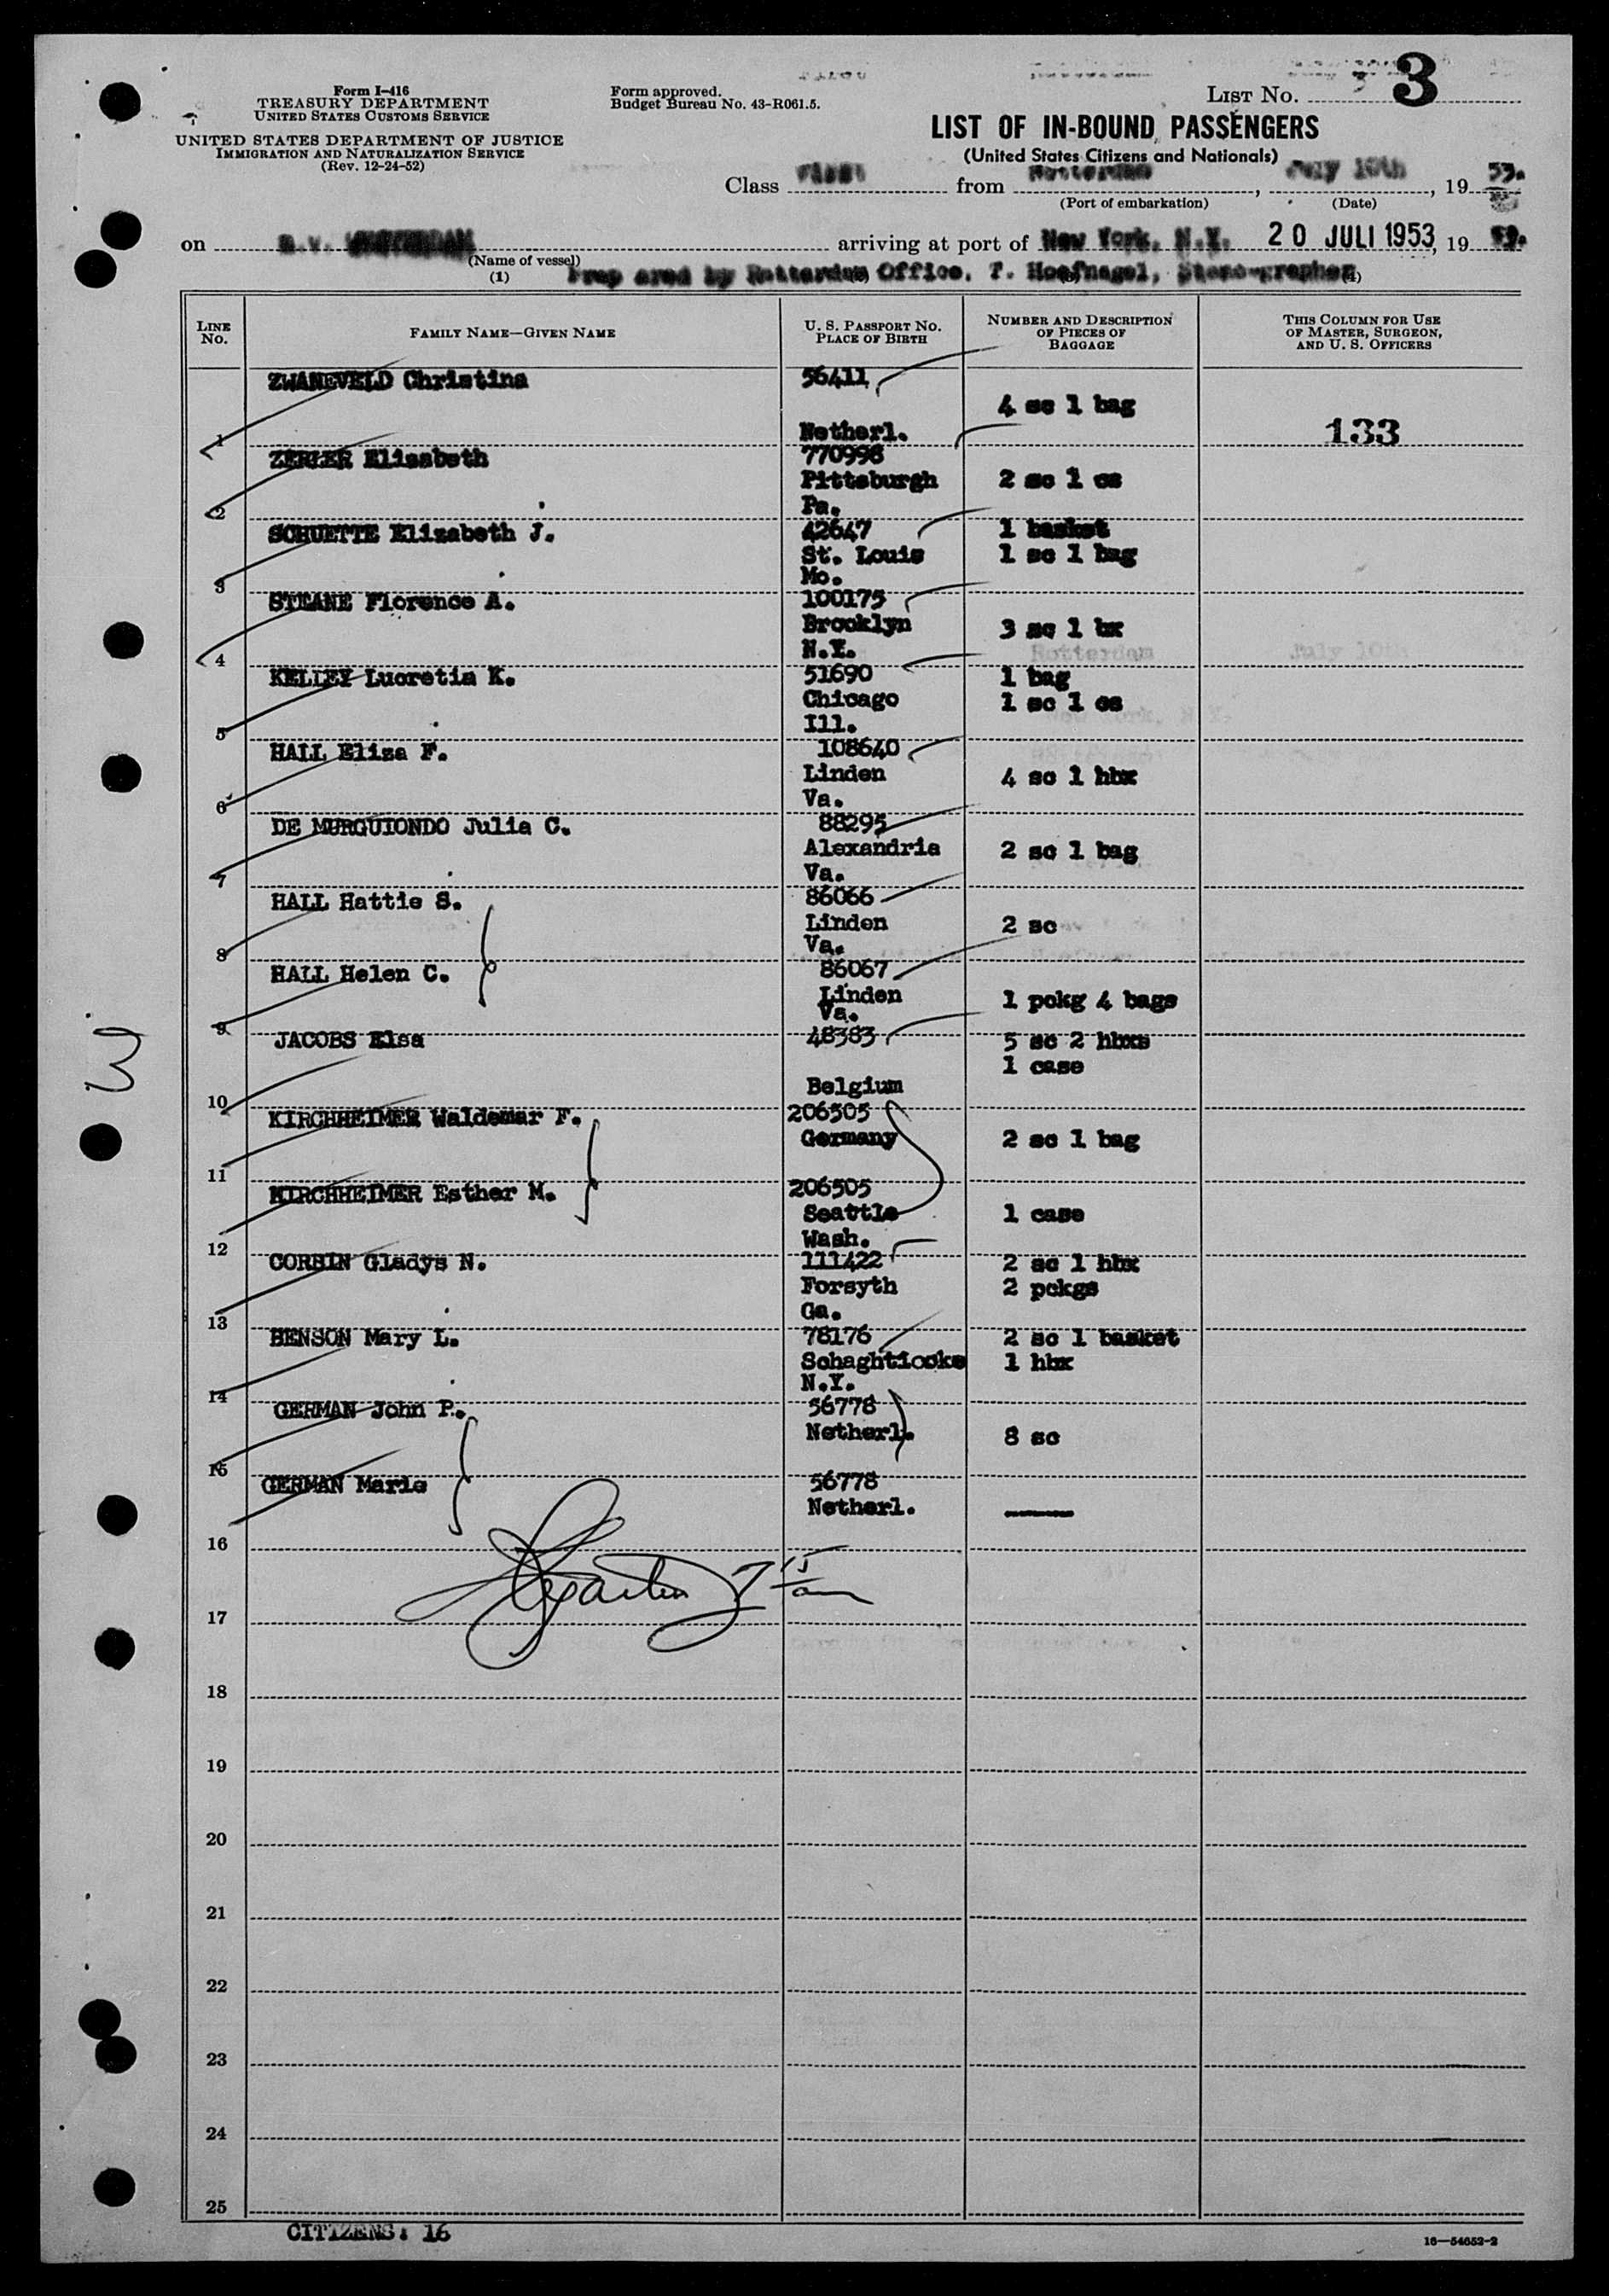 Form I-416
TREASURY DEPARTMENT
UNITED STATES CUSTOMS SERVICE
UNITED STATES DEPARTMENT OF JUSTICE
IMMIGRATION AND NATURALIZATION SERVICE
(Rev. 12-24-52)
Form approved.
Budget Bureau No. 43-R061.5.
LIST No. 3
LIST OF IN-BOUND PASSENGERS
(United States Citizens and Nationals)
Class First from Rotterdam, July 10th, 19 53.
(Port of embarkation) (Date)
on m.v. arriving at port of New York, N.Y. 20 JULI 1953, 19 53.
(Name of vessel)
(1) Prep ared by Rotterdam Office, T. Hoefnagel, Steno-grapher (4)
LINE No. FAMILY NAME—GIVEN NAME U. S. PASSPORT No. PLACE OF BIRTH NUMBER AND DESCRIPTION OF PIECES OF BAGGAGE THIS COLUMN FOR USE OF MASTER, SURGEON, AND U. S. OFFICERS
ZWANEVELD Christina 56411
4 sc 1 bag
1 Netherl. 133
ZERLER Elisabeth 770998
Pittsburgh 2 sc 1 cs
2 Pa.
SCHUETTE Elizabeth J. 42647 1 basket
St. Louis 1 sc 1 bag
3 Mo.
STEANE Florence A. 100175
Brooklyn 3 sc 1 bx
4 N.Y.
KELLEY Lucretia K. 51690 1 bag
Chicago 1 sc 1 cs
5 Ill.
HALL Eliza F. 108640
Linden 4 sc 1 hbx
6 Va.
DE MURGUIONDO Julia C. 88295
Alexandria 2 sc 1 bag
7 Va.
HALL Hattie S. 86066
Linden 2 sc
8 Va.
HALL Helen C. 86067
Linden 1 pckg 4 bags
9 Va.
JACOBS Elsa 48383 5 sc 2 hbxs
1 case
10 Belgium
KIRCHHEIMER Waldemar F. 206505
Germany 2 sc 1 bag
11
KIRCHHEIMER Esther M. 206505
Seattle 1 case
12 Wash.
CORBIN Gladys N. 111422 2 sc 1 hbx
Forsyth 2 pckgs
13 Ga.
BENSON Mary L. 78176 2 sc 1 basket
Schaghticoke 1 hbx
14 N.Y.
GERMAN John P. 56778
Netherl. 8 sc
15
GERMAN Marie 56778
Netherl.
16
17
18
19
20
21
22
23
24
25
CITIZENS: 16
16—54652-2
3